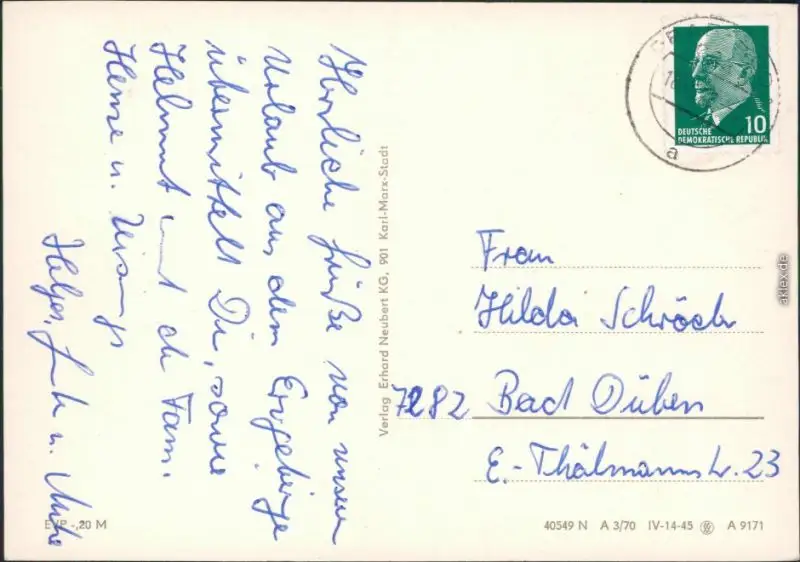 Herzliche Grüße von unserem
Urlaub aus dem Erzgebirge
übermittelt Dir, sowie
Helmut und d. Fam.
Henze u.
Helga, u.
Verlag Erhard Neubert KG, 901 Karl-Marx-Stadt
10
DEUTSCHE
DEMOKRATISCHE REPUBLIK
a
Frau
Hilda Schröck
7282 Bad Düben
E.-Thälmannstr. 23
EVP -,20 M
40549 N A 3/70 IV-14-45 A 9171
aklex.de